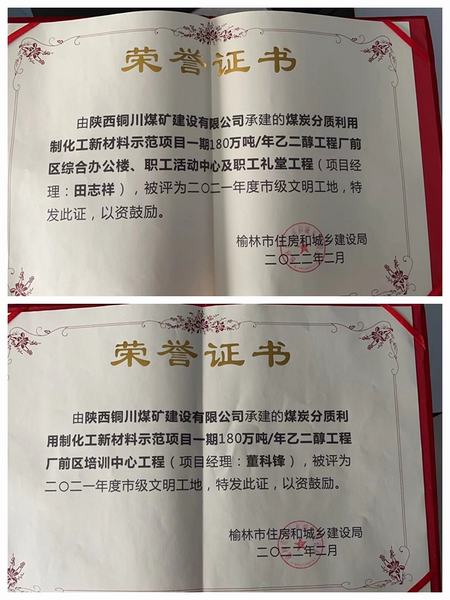 荣誉证书
由陕西铜川煤矿建设有限公司承建的煤炭分质利用
制化工新材料示范项目一期180万吨/年乙二醇工程厂前
区综合办公楼、职工活动中心及职工礼堂工程(项目经
理:田志祥),被评为二〇二一年度市级文明工地,特
发此证,以资鼓励。
榆林市住房和城乡建设局
二〇二二年二月
荣誉证书
由陕西铜川煤矿建设有限公司承建的煤炭分质利
用制化工新材料示范项目一期180万吨/年乙二醇工程
厂前区培训中心工程(项目经理:董科锋),被评为
二〇二一年度市级文明工地,特发此证,以资鼓励。
榆林市住房和城乡建设局
二〇二二年二月